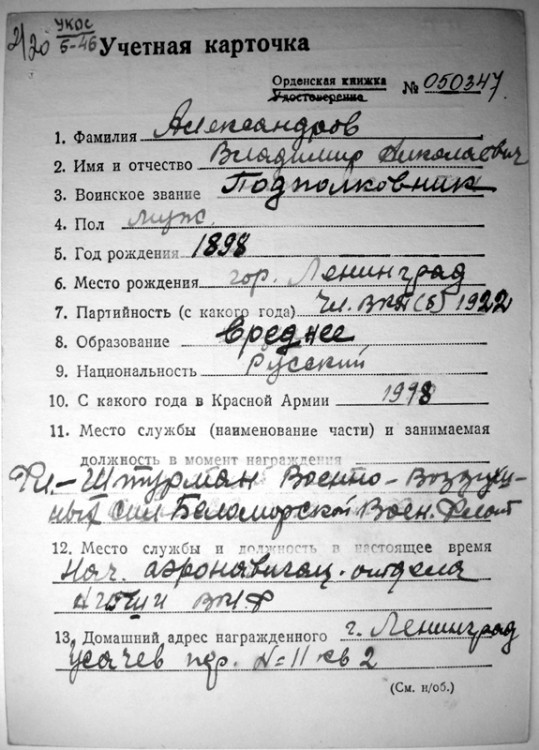 21/20 УКОС
5-46
Учетная карточка
Орденская книжка
Удостоверение № 050347.
1. Фамилия Александров
2. Имя и отчество Владимир Николаевич
3. Воинское звание Подполковник
4. Пол муж.
5. Год рождения 1898
6. Место рождения гор. Ленинград
7. Партийность (с какого года) Чл. ВКП(б) 1922
8. Образование Среднее
9. Национальность Русский
10. С какого года в Красной Армии 1998
11. Место службы (наименование части) и занимаемая
должность в момент награждения
Фл.-Штурман Военно-Воздуш-
ных сил Беломорской Воен. Флот
12. Место службы и должность в настоящее время
Нач. аэронавигац. отдела
ВМФ
13. Домашний адрес награжденного г. Ленинград
Усачев пер. №11 кв 2
(См. н/об.)